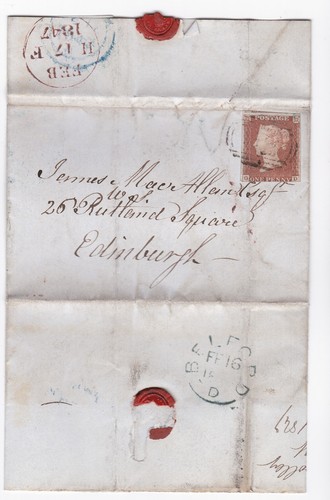 FEB
H 17 F
1847
POSTAGE
ONE PENNY
James Mac Allan Esqr
W.S.
26 Rutland Square
Edinburgh
BELFORD
FE 16
D